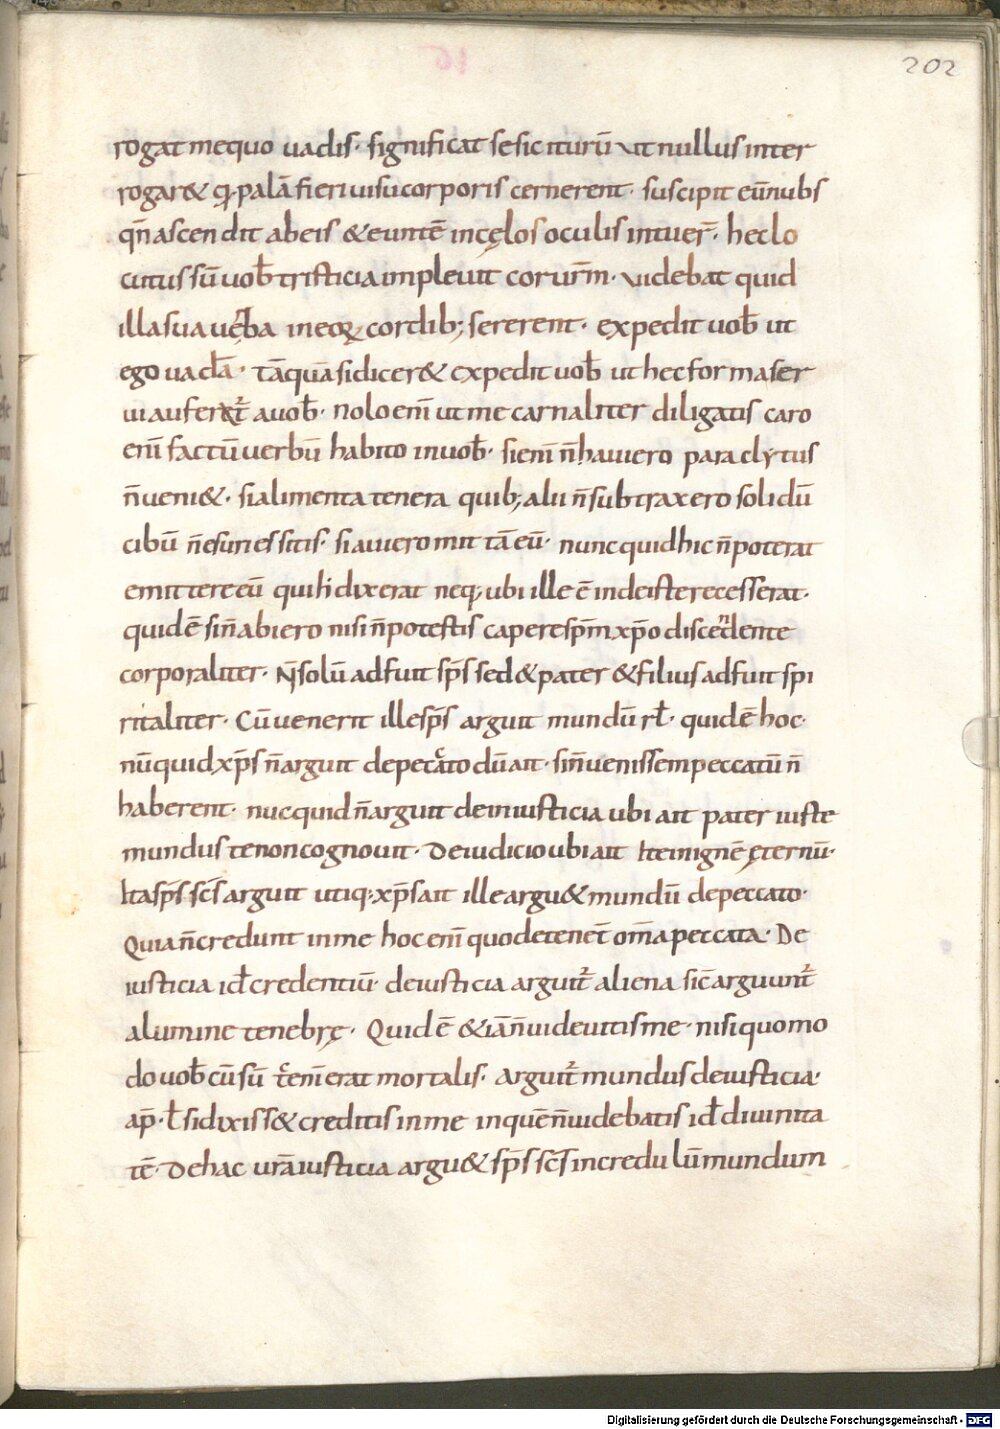 202
rogat me quo uadis· significat se sic iturū ut nullus inter
rogar& qꝫ palā fieri uisu corporis cernerent· suscipit eū nubs
qn̄ ascendit ab eis & euntē in cęlos oculis intuer̄· hec lo
cutus sū uob̄ tristicia impleuit cor ur̄m· uidebat quid
illa sua uerba in eoꝝ cordib; sererent· expedit uob̄ ut
ego uadā· tāquā si dicer& expedit uob̄ ut hec forma ser
ui auferat̄ a uob̄· nolo eni̅ ut me carnaliter diligatis caro
eni̅ factū uerbū habito in uob̄· si eni̅ n̄ habiero paraclytus
n̄ ueni&· si alimenta tenera quib; alui n̄ subtraxero solidū
cibū n̄ esuriessitis· si abiero mittā eū· nunc quid hic n̄ poterat
emittere eū qui hi dixerat neq; ubi ille ē inde iste recesserat·
quid ē si n̄ abiero nisi n̄ potestis capere sp̄m xp̄o discedente
corporaliter· N̄ solū adfuit sp̄s sed & pater & filius adfuit spi
ritaliter· Cū uenerit ille sp̄s arguit mundū rł· quid ē hoc·
nūquid xp̄s n̄ arguit de peccato dū ait· si n̄ uenissem peccatū n̄
haberent· nuc quid n̄ arguit de iniusticia ubi ait pater iuste
mundus te non cognouit· De iudicio ubi ait Ite in ignē ęternū·
Ita sp̄s sc̄s arguit utiq; xp̄s ait ille argu& mundū de peccato·
Quia n̄ credunt in me hoc eni̅ quo detenet̄ om̄a peccata· De
iusticia id̄ credentiū· de iusticia arguit̄ aliena sic̄ arguunt̄
a lumine tenebrę· Quid ē & iā n̄ uidebitis me· nisi quomo
do uob̄ cū sū t̄ eni̅ erat mortalis· arguit̄ mundus de iusticia·
ap̄· ł si dixiss& creditis in me in quē n̄ uidebatis id̄ diuinita
tē· De hac ur̄a iusticia argu& sp̄s sc̄s incredulū mundum
Digitalisierung gefördert durch die Deutsche Forschungsgemeinschaft - DFG